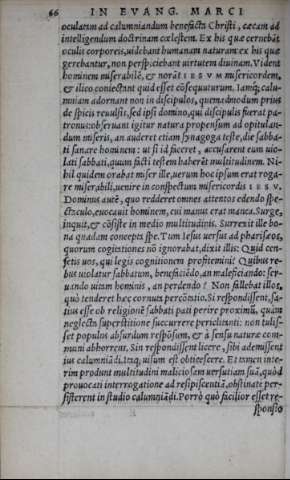 66 IN EVANG. MARCI
oculatam ad calumniandum benefacta Christi, cæcam ad
intelligendum doctrinam cœlestem. Ex his quæ cernebãt
oculis corporeis, uidebant humanam naturam: ex his quæ
gerebantur, non perspiciebant uirtutem diuinam. Vident
hominem miserabilẽ, & norãt IESVM misericordem,
& ilico coniectant quid esset cõsequuturum. Iamq; calu-
mniam adornant non in discipulos, quemadmodum prius
de spicis reuulsis, sed ipsi domino, qui discipulis fuerat pa-
tronus: obseruant igitur natura propensum ad opitulan-
dum miseris, an auderet etiam synagoga teste, die sabba-
ti sanare hominem: ut si id faceret, accusarent eum uio-
lati sabbati, quum facti testem haberẽt multitudinem. Ni-
hil quidem orabat miser ille, uerum hoc ipsum erat roga-
re miserabili, uenire in conspectum misericordis IESV.
Dominus autẽ, quo redderet omnes attentos edendo spe-
ctaculo, euocauit hominem, cui manus erat manca. Surge,
inquit, & cõsiste in medio multitudinis. Surrexit ille bo-
na quadam concepta spe. Tum Iesus uersus ad pharisæos,
quorum cogitationes nõ ignorabat, dixit illis: Quid cen-
setis uos, qui legis cognitionem profitemini? Quibus re-
bus uiolatur sabbatum, benefaciẽdo, an maleficiendo: ser-
uando uitam hominis, an perdendo? Non fallebat illos,
quò tenderet hæc cornuta percõtatio. Si respondissent, sa-
tius esse ob religionẽ sabbati pati perire proximũ, quàm
neglecta superstitione succurrere periclitanti: non tulis-
set populus absurdum respõsum, & à sensu naturæ com-
muni abhorrens. Sin respondissent licere, sibi ademissent
ius calumniãdi. Itaq; uisum est obticescere. Et tamen inte-
rim produnt multitudini maliciosam uersutiam suã, quòd
prouocati interrogatione ad resipiscentiã, obstinate per-
sisterent in studio calumniãdi. Porrò quò facilior esset re-
sponsio